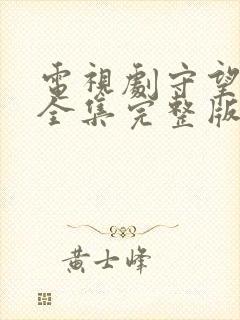 電視劇守望
全集完整版
黄士峰